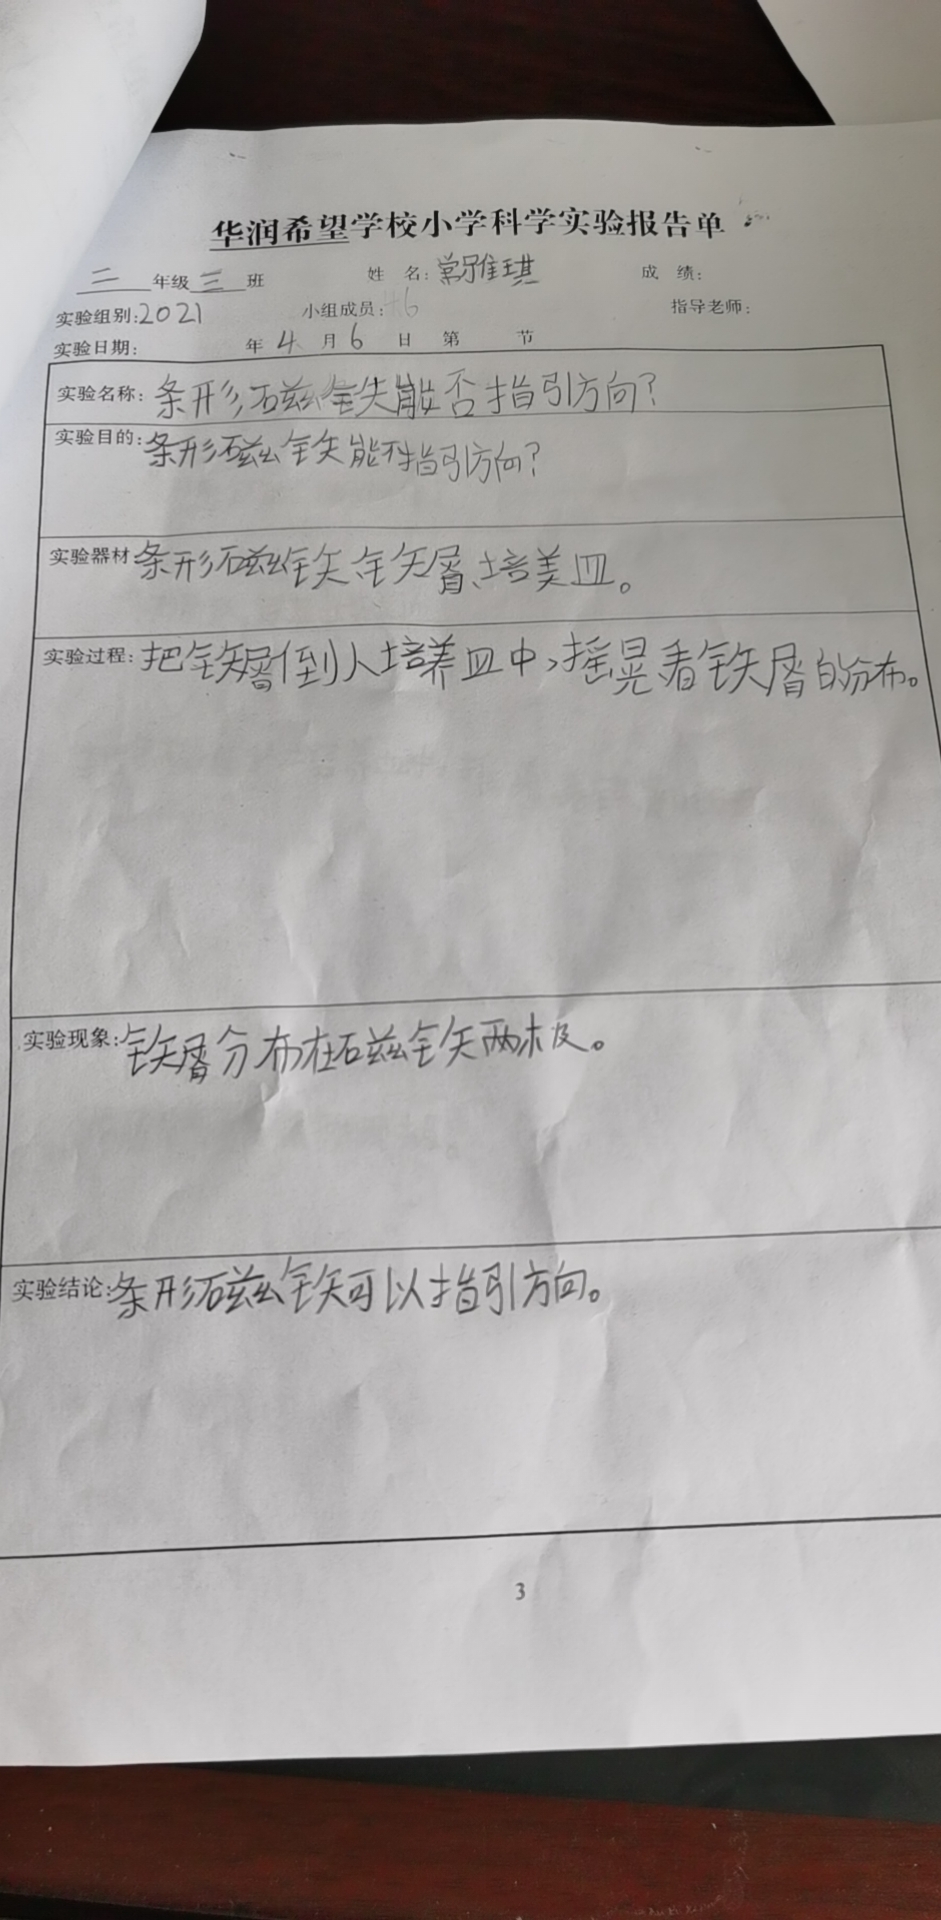 华润希望学校小学科学实验报告单
二年级三班 姓 名:常雅琪 成 绩:
实验组别:2021 小组成员:46 指导老师:
实验日期: 年4月6日 第 节
实验名称:条形磁铁能否指引方向?
实验目的:条形磁铁能不指引方向?
实验器材条形磁铁、铁屑、培养皿。
实验过程:把铁屑倒入培养皿中,摇晃看铁屑的分布。
实验现象:铁屑分布在磁铁两极。
实验结论:条形磁铁可以指引方向。
3